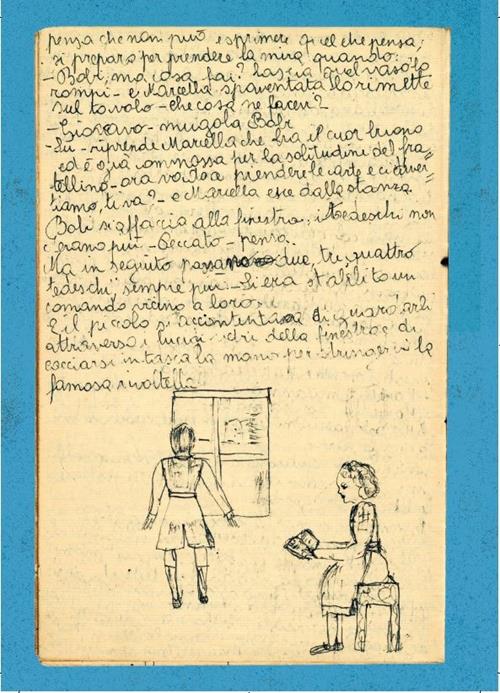 pensa che non può esprimere quel che pensa,
si prepara per prendere la mira quando:
- Bobi, ma cosa fai? Lascia quel vaso lo
rompi - e Marcella spaventata lo rimette
sul tavolo - che cosa ne facevi?
- Giocavo - mugola Bobi
- Su - riprende Marcella che ha il cuor buono
ed è già commossa per la solitudini del fra=
tellino - ora vado a prendere le carte e ci diver=
tiamo, ti va? - e Marcella esce dalla stanza.
Bobi si affaccia alla finestra, i tedeschi non
c'erano più - Peccato - pensa.
Ma in seguito passarono due, tre, quattro
tedeschi sempre più - Si era stabilito un
comando vicino a loro.
E il piccolo si accontentava di guardarli
attraverso i lucidi vetri della finestra e di
cacciarsi in tasca la mano per stringervi la
famosa rivoltella